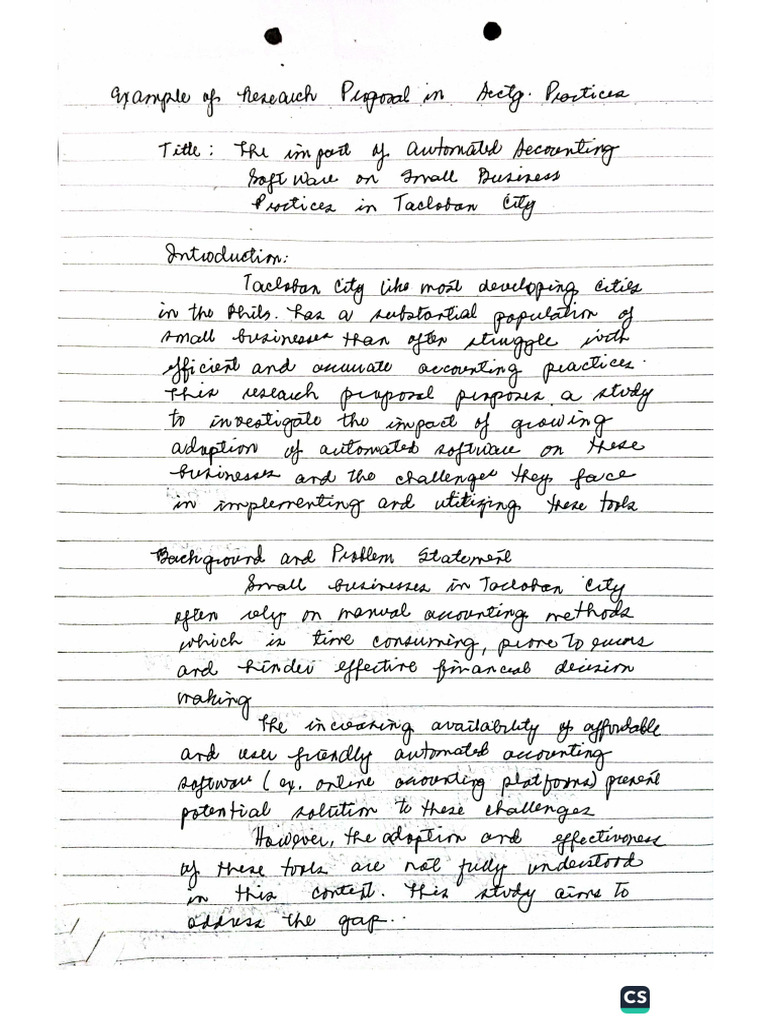 Example of Research Proposal in Acctg. Practices
Title: The impact of Automated Accounting
Software on Small Business
Practices in Tacloban City
Introduction:
Tacloban City like most developing cities
in the Phils. has a substantial population of
small businesses than often struggle with
efficient and accurate accounting practices.
This research proposal proposes a study
to investigate the impact of growing
adoption of automated software on these
businesses and the challenges they face
in implementing and utilizing these tools
Background and Problem Statement
Small businesses in Tacloban City
often rely on manual accounting methods
which is time consuming, prone to errors
and hinder effective financial decision
making
The increasing availability of affordable
and user friendly automated accounting
software (ex. online accounting platforms) present
potential solution to these challenges
However, the adoption and effectiveness
of these tools are not fully understood
in this context. This study aims to
address the gap..
CS